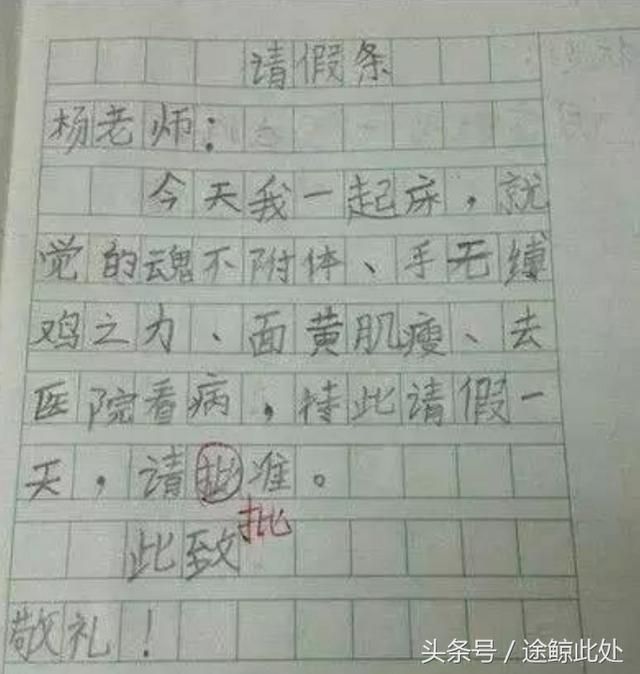 请假条
杨老师：
今天我一起床，就
觉的魂不附体、手无缚
鸡之力、面黄肌瘦、去
医院看病，特此请假一
天，请批准。
批
此致
敬礼！
头条号／途鲸此处